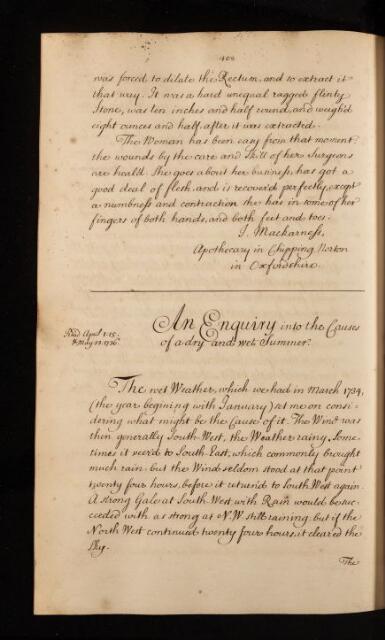 400
was forced to dilate the Rectum, and to extract it
that way. It was a hard unequal ragged flinty
Stone, was ten inches and half round, and weigh'd
eight ounces and half, after it was extracted.
The Woman has been easy from that moment
the wounds by the care and skill of her Surgeons
are heal'd. She goes about her business, has got a
good deal of flesh, and is recover'd perfectly, except
a numbness and contraction she has in some of her
fingers of both hands, and both feet and toes.
J. Mackarness,
Apothecary in Chipping Norton
in Oxfordshire.
An Enquiry into the Causes
of a dry and wet Summer.
Read April 1. 15.
& May 13. 1736.
The wet Weather, which we had in March 1734,
(the year begining with January) set me on consi-
dering what might be the Cause of it. The Wind was
then generally South-West, the Weather rainy. Some-
times it veer'd to South-East, which commonly brought
much rain: but the Wind seldom stood at that point
twenty four hours, before it return'd to South West again.
A strong Gale at South West with Rain would be suc-
ceeded with as strong at N.W. still raining: but if the
North West continued twenty four hours, it clear'd the
Sky.
The